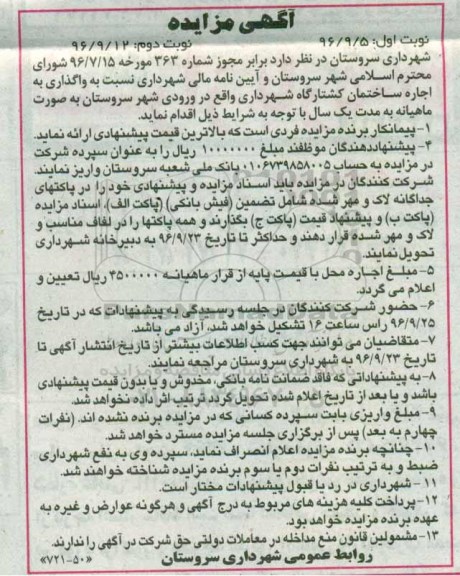 آگهی مزایده
نوبت اول: ۹۶/۹/۵ نوبت دوم: ۹۶/۹/۱۲
شهرداری سروستان در نظر دارد برابر مجوز شماره ۳۶۳ مورخه ۹۶/۷/۱۵ شورای
محترم اسلامی شهر سروستان و آیین نامه مالی شهرداری نسبت به واگذاری به
اجاره ساختمان کشتارگاه شهرداری واقع در ورودی شهر سروستان به صورت
ماهیانه به مدت یک سال با توجه به شرایط ذیل اقدام نماید.
۱-پیمانکار برنده مزایده فردی است که بالاترین قیمت پیشنهادی ارائه نماید.
۴- پیشنهاددهندگان موظفند مبلغ ۱۰۰۰۰۰۰۰ ریال را به عنوان سپرده شرکت
در مزایده به حساب ۰۱۰۶۷۳۹۸۵۸۰۰۵ بانک ملی شعبه سروستان واریز نمایند.
شرکت کنندگان در مزایده باید اسناد مزایده و پیشنهادی خود را در پاکتهای
جداگانه لاک و مهر شده شامل تضمین (فیش بانکی) (پاکت الف)، اسناد مزایده
(پاکت ب) و پیشنهاد قیمت (پاکت ج) بگذارند و همه پاکتها را در لفاف مناسب و
لاک و مهر شده قرار دهند و حداکثر تا تاریخ ۹۶/۹/۲۳ به دبیرخانه شهرداری
تحویل نمایند.
۵- مبلغ اجاره محل با قیمت پایه از قرار ماهیانه ۴۵۰۰۰۰۰ ریال تعیین و
اعلام می گردد.
۶- حضور شرکت کنندگان در جلسه رسیدگی به پیشنهادات که در تاریخ
۹۶/۹/۲۵ راس ساعت ۱۶ تشکیل خواهد شد، آزاد می باشد.
۷- متقاضیان می توانند جهت کسب اطلاعات بیشتر از تاریخ انتشار آگهی تا
تاریخ ۹۶/۹/۲۳ به شهرداری سروستان مراجعه نمایند.
۸-به پیشنهاداتی که فاقد ضمانت نامه بانکی، مخدوش و یا بدون قیمت پیشنهادی
باشد و یا بعد از تاریخ اعلام شده تحویل گردد ترتیب اثر داده نخواهد شد.
۹- مبلغ واریزی بابت سپرده کسانی که در مزایده برنده نشده اند. (نفرات
چهارم به بعد) پس از برگزاری جلسه مزایده مسترد خواهد شد.
۱۰-چنانچه برنده مزایده اعلام انصراف نماید، سپرده وی به نفع شهرداری
ضبط و به ترتیب نفرات دوم یا سوم برنده مزایده شناخته خواهند شد.
۱۱- شهرداری در رد یا قبول پیشنهادات مختار است.
۱۲-پرداخت کلیه هزینه های مربوط به درج آگهی و هرگونه عوارض و غیره به
عهده برنده مزایده خواهد بود.
۱۳-مشمولین قانون منع مداخله در معاملات دولتی حق شرکت در آگهی را ندارند.
روابط عمومی شهرداری سروستان «۷۲۱-۵۰»